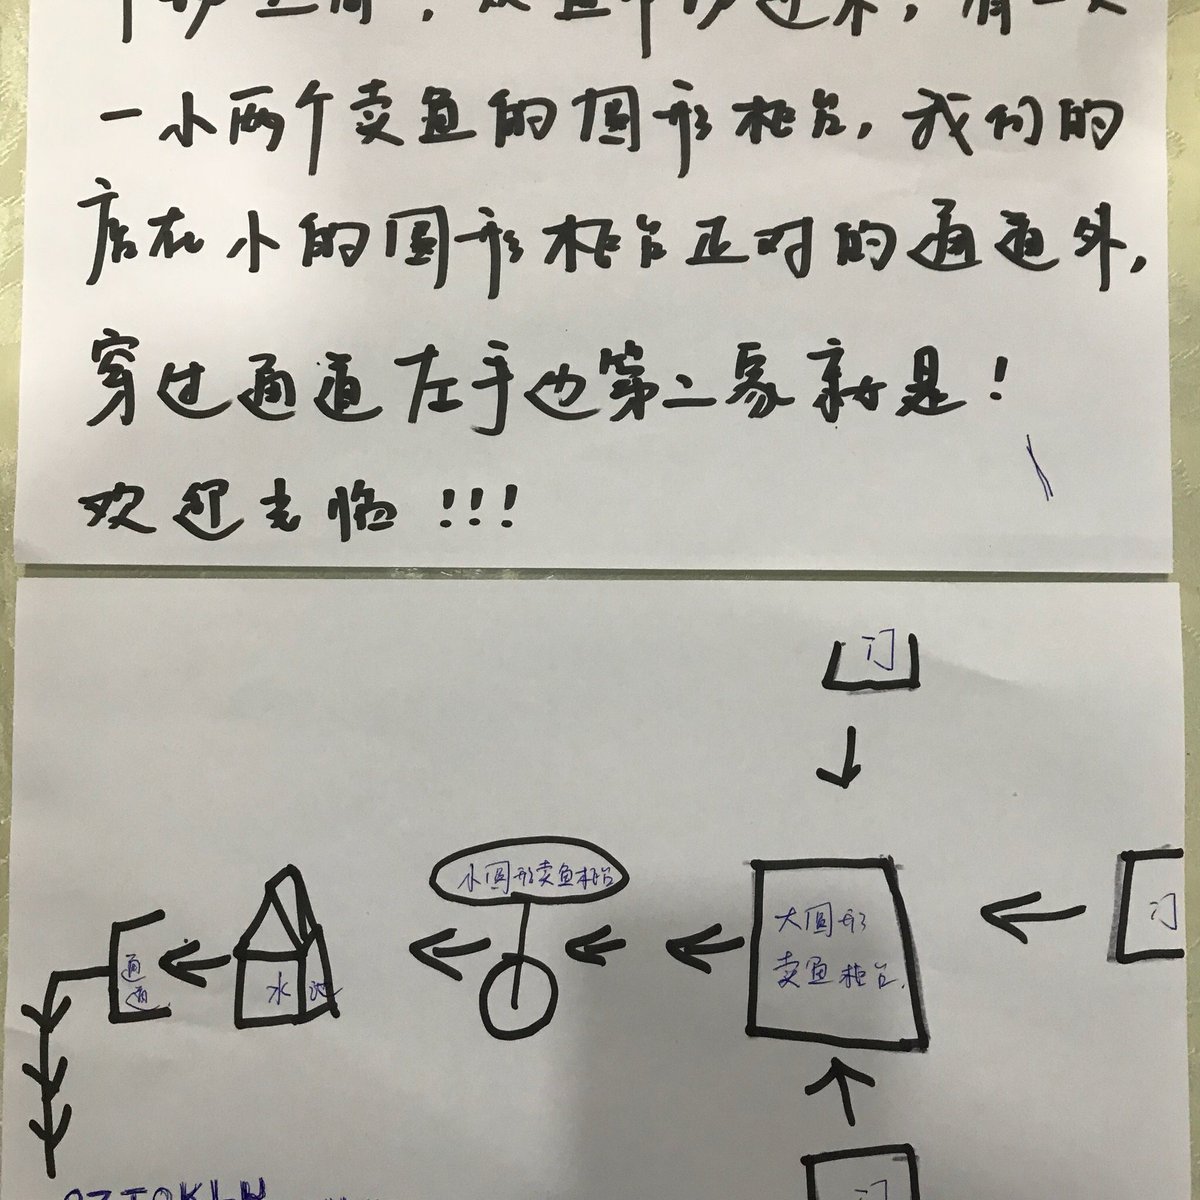 一小两个卖鱼的圆形柜台，我们的
店在小的圆形柜台正对的通道外，
穿过通道左手边第二家就是！
欢迎光临！！！
门
小圆形卖鱼柜台
大圆形
卖鱼柜台.
门
水池
通道
门